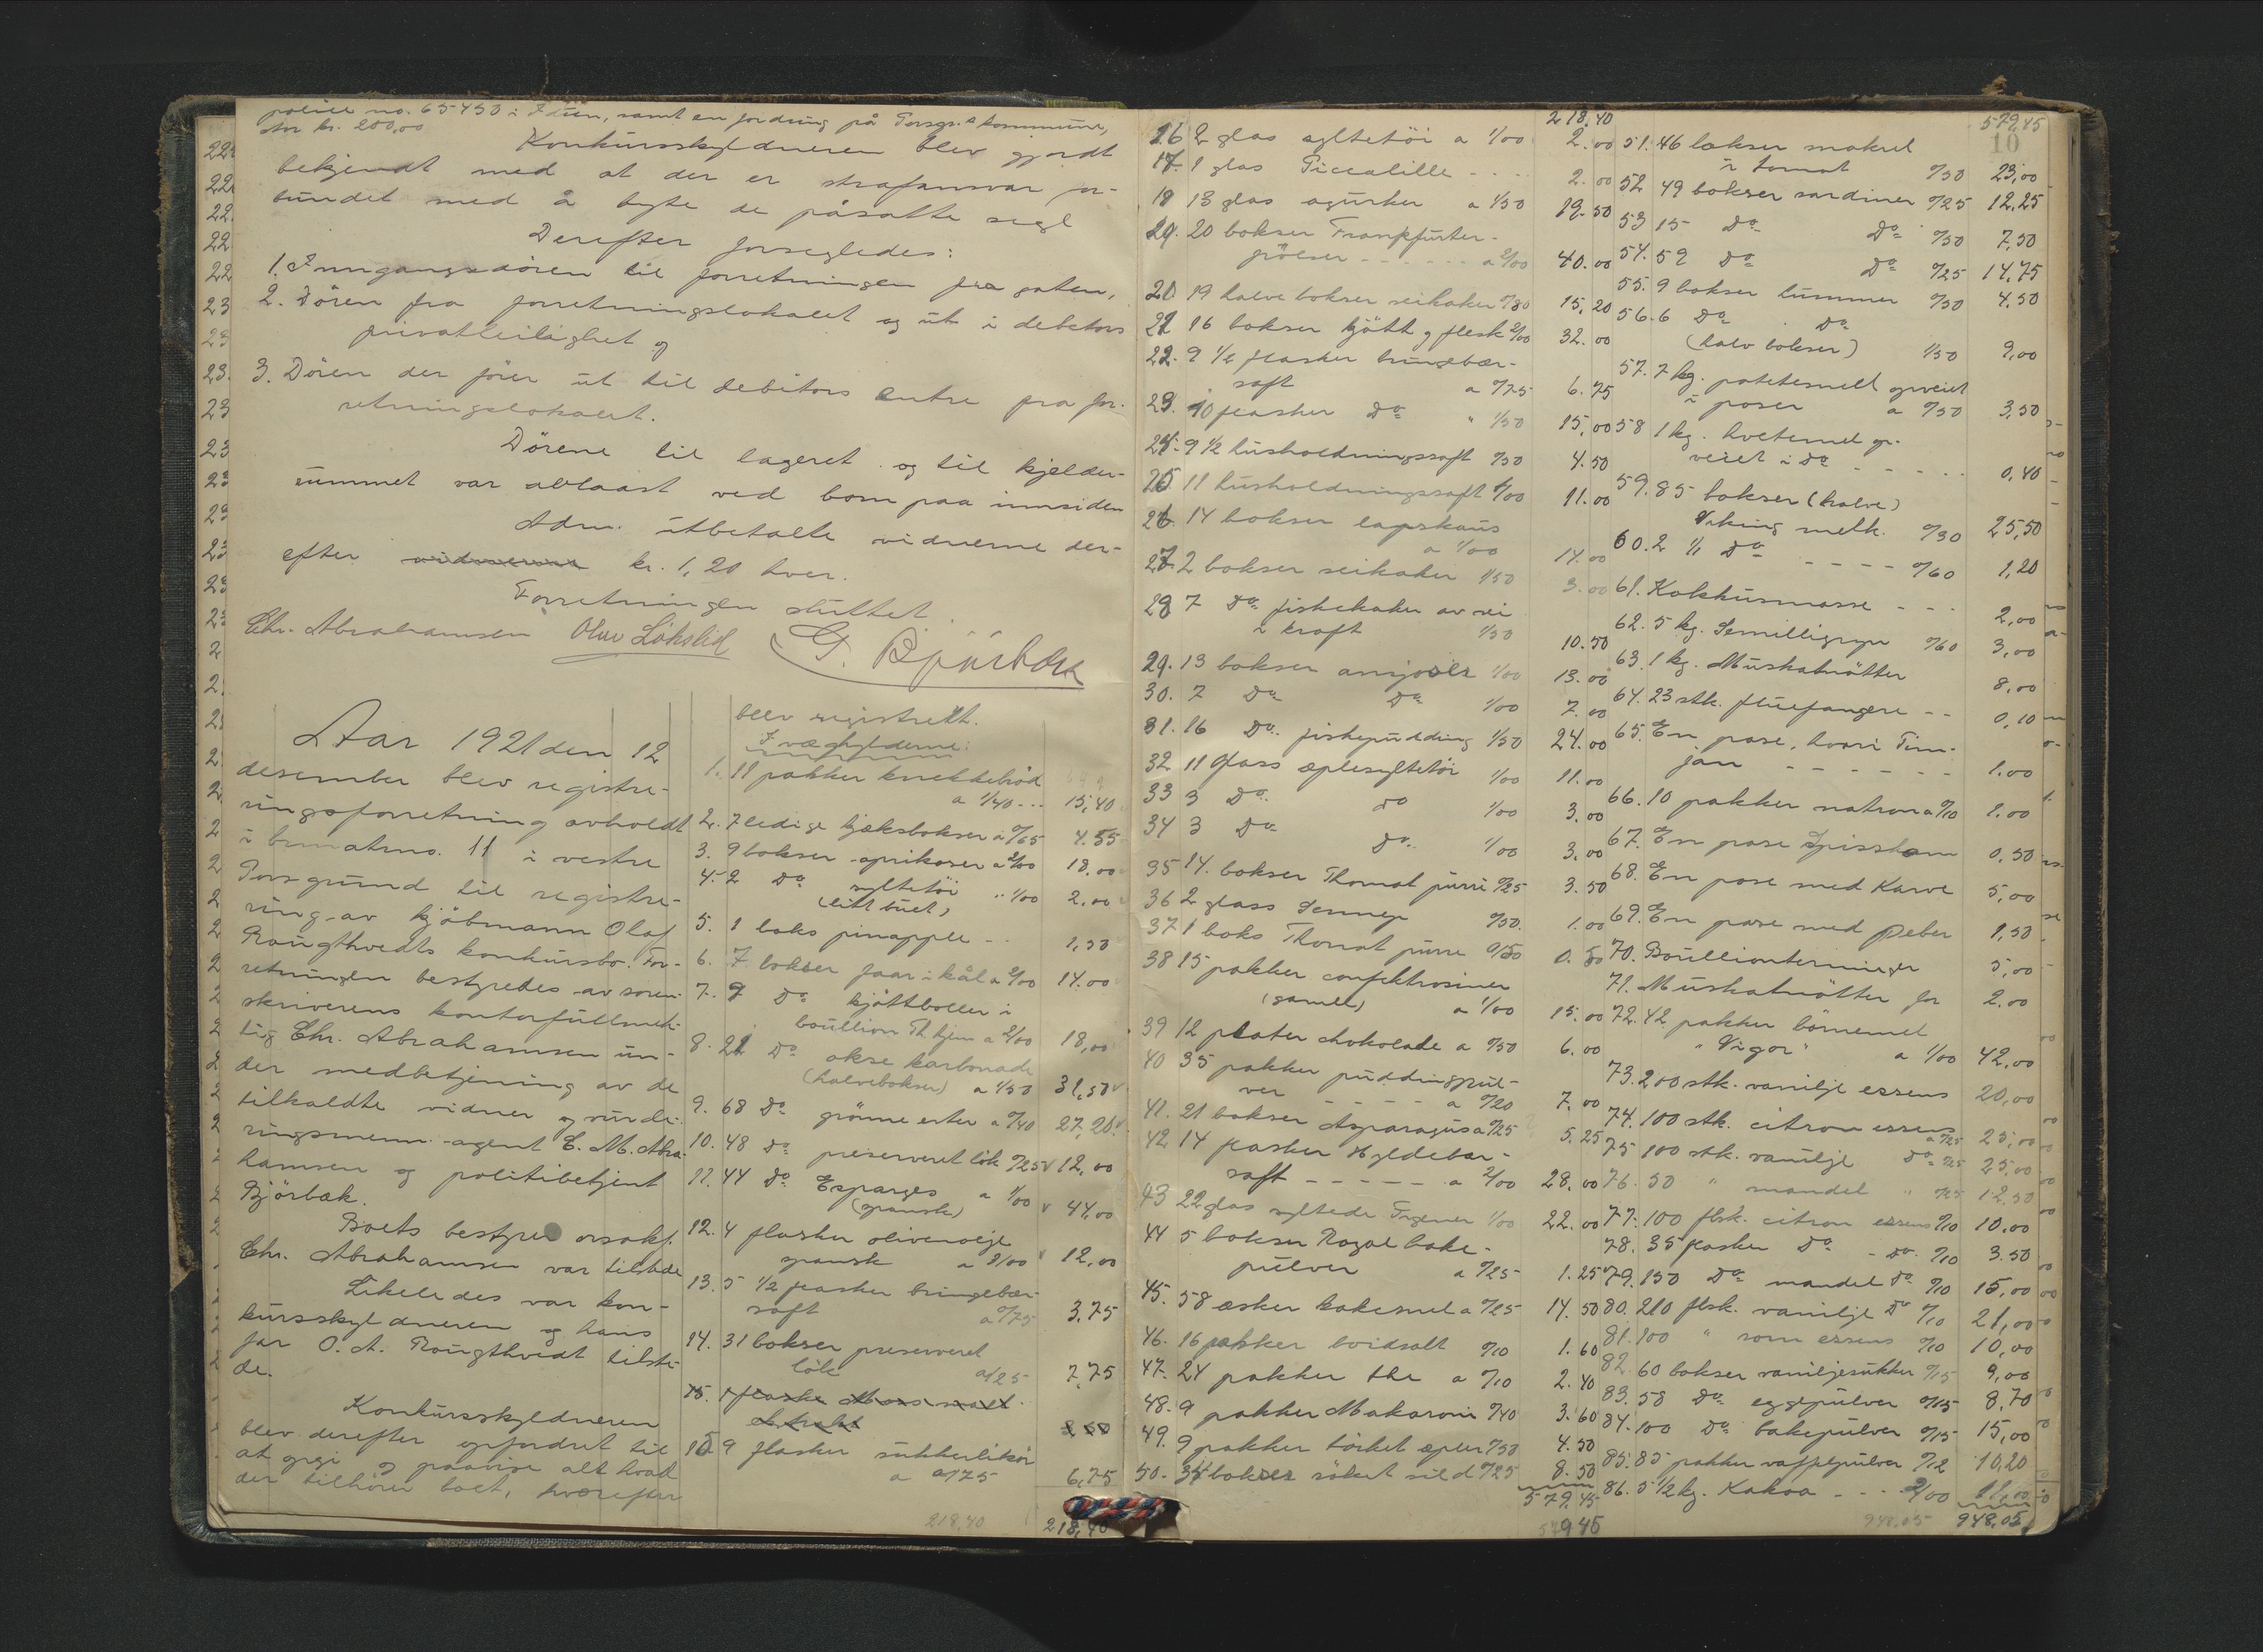 police no. 65450 i Idun, samt en fordring på Porsgr. kommune,
stor kr. 200,00
Konkursskyldneren blev gjordt
bekjendt med at der er strafansvar for-
bundet med å bryte de påsatte segl
Derefter forsegledes:
1. Inngangsdören til forretningen fra gaten,
2. Dören fra forretningslokalet og ut i debitors
privatleilighet og
3. Dören der förer ut til debitors entre fra for-
retningslokalet.
Dörene til lageret og til kjelder-
rummet var avlaast ved bom paa innsiden
Adm. utbetalte vidnerne der-
efter kr. 1,20 hver.
Forretningen sluttet.
Chr. Abrahamsen Olav Lökslid G. Björbæk
Aar 1921 den 12
desember blev registre-
ringsforretning avholdt
i brmatrno. 11 i vestre
Porsgrund til registre-
ring av kjöbmann Olaf
Rougthvedts konkursbo. For-
retningen bestyredes av soren-
skriverens kontorfullmek-
tig Chr. Abrahamsen un-
der medbetjening av de
tilkaldte vidner og vurde-
ringsmenn agent C. M. Abra-
hamsen og politibetjent
Björbæk.
Boets bestyrer orsakf.
Chr. Abrahamsen var tilstede
Likeledes var kon-
kursskyldneren og hans
far O. A. Rougthvedt tilste-
de.
Konkursskyldneren
blev derefter opfordret til
at opgi og paavise alt hvad
der tilhörer boet, hvorefter
blev registrert.
I væghylderne:
1. 11 pakker knekkebröd
a 1/40 --- 15,40
2. 7 ledige kjeksbokser a 0/65 4.55
3. 9 bokser aprikoser a 2/00 18.00
4. 2 Do syltetöi " 1/00 2.00
(litt buet)
5. 1 boks pinapple -- 1,50
6. 7 bokser faar i kål a 2/00 14.00
7. 9 Do kjöttboller i
boullion Th hjem a 2/00 18,00
8. 21 Do okse karbonade
(halvebokser) a 1/50 31,50
9. 68 Do grönne erter a 0/40 27,20
10. 48 Do preserveret lök 0/25 12,00
11. 44 Do Esparges a 1/00 44,00
(spansk)
12. 4 flasker olivenolje
spansk a 3/00 12,00
13. 5 1/2 flasker bringebær-
saft a 0/75 3,75
14. 31 bokser preserveret
lök a/25 7,75
15. 1 flaske Maos malt
ekstrakt
15 9 flasker sukkerlikör
a 0/75 6,75
218,40 218,40
218,40
16 2 glas syltetöi a 1/00 2.00
17. 1 glas Piccalille ---- 2.00
18 13 glas agurker a 1/50 19.50
19. 20 bokser Frankfurter-
pölser ------ a 2/00 40.00
20 19 halve bokser seikaker 0/80 15,20
21 16 bokser kjött og flesk 2/00 32.00
22. 9 1/2 flasker bringebær-
saft a 0/75 6.75
23. 10 flasker Do " 1/50 15,00
24. 9 1/2 husholdningssaft 0/50 4.50
25. 11 husholdningssaft 1/00 11.00
26. 14 bokser lapskaus
a 1/00 14.00
27. 2 bokser seikaker 1/50 3.00
28 7 Do fiskekaker av sei
i kraft 1/50 10.50
29. 13 bokser ansjoser 1/00 13.00
30. 7 Do Do 1/00 7.00
31. 16 Do fiskepudding 1/50 24.00
32 11 Glass æplesyltetöi 1/00 11.00
33 3 Do. do 1/00 3.00
34 3 Do Do 1/00 3.00
35 14. bokser Thomat purri 0/25 3.50
36 2 glass Sennep 0/50. 1.00
37 1 boks Thomat purre 0/50 0.50
38 15 pakker confektrosiner
(gamle) a 1/00 15.00
39 12 plater chokolade a 0/50 6.00
40 35 pakker puddingpul-
ver ---- a 0/20 7.00
41. 21 bokser Asparagus a 0/25 5.25
42 14 flasker Hyldebær-
saft ----- a 2/00 28.00
43 22 glas syltede Fegener 1/00 22.00
44 5 bokser Royal bake-
pulver a 0/25 1.25
45. 58 æsker kakemel a 0/25 14.50
46. 16 pakker hvidsalt 0/10 1.60
47. 24 pakker the a 0/10 2.40
48. 9 pakker Makaroni 0/40 3.60
49. 9 pakker törket æpler 0/50 4.50
50. 34 bokser röket sild 0/25 8.50
579,45
579 45
579,45
10
51. 46 bokser makrel
i tomat 0/50 23,00
52 49 bokser sardiner 0/25 12,25
53 15 Do Do 0/50 7,50
54. 59 Do Do 0/25 14,75
55. 9 bokser hummer 0/50 4.50
56. 6 Do Do
(halv bokser) 1/50 9,00
57. 7 kg. potetesmell opveiet
i poser a 0/50 3,50
58 1 kg. hvetemel op-
veiet i do ----- 0,40
59. 85 bokser (halve)
Viking melk. 0/30 25,50
60. 2 1/1 Do ---- 0/60 1,20
61. Kokkusmasse --- 2,00
62. 5 kg. Semilligryn 0/60 3,00
63. 1 kg. Muskatnötter 8,00
64. 23 stk. fluefangere -- 0,10
65. En pose, hvori Tim-
jan ------ 1.00
66. 10 pakker natron a 0/10 1.00
67. En pose Spisskom 0,50
68. En pose med Karve 5,00
69. En pose med Peber 1,50
70. Boullionterninger 5,00
71. Muskatnötter for 2.00
72. 42 pakker börnemel
"Vigor" a 1/00 42,00
73. 200 stk. vanilje essens 20,00
74. 100 stk. citron essens
a 0/25 25,00
75 100 stk. vanilje do 0/25 25,00
76. 50 " mandel " 0/25 12,50
77. 100 flsk. citron essens 0/10 10,00
78. 35 flasker Do - do 0/10 3.50
79. 150 Do mandel do 0/10 15,00
80. 210 flsk. vanilje Do 0/10 21,00
81. 100 " rom essens 0/10 10,00
82. 60 bokser vaniljesukker 0/15 9,00
83. 58 Do eggepulver 0/15 8,70
84. 100 Do bakepulver 0/15 15,00
85. 85 pakker vaffelpulver 0/12 10,20
86. 5 1/2 kg. Kakao --- 2/00 11,00
948,05 948,05